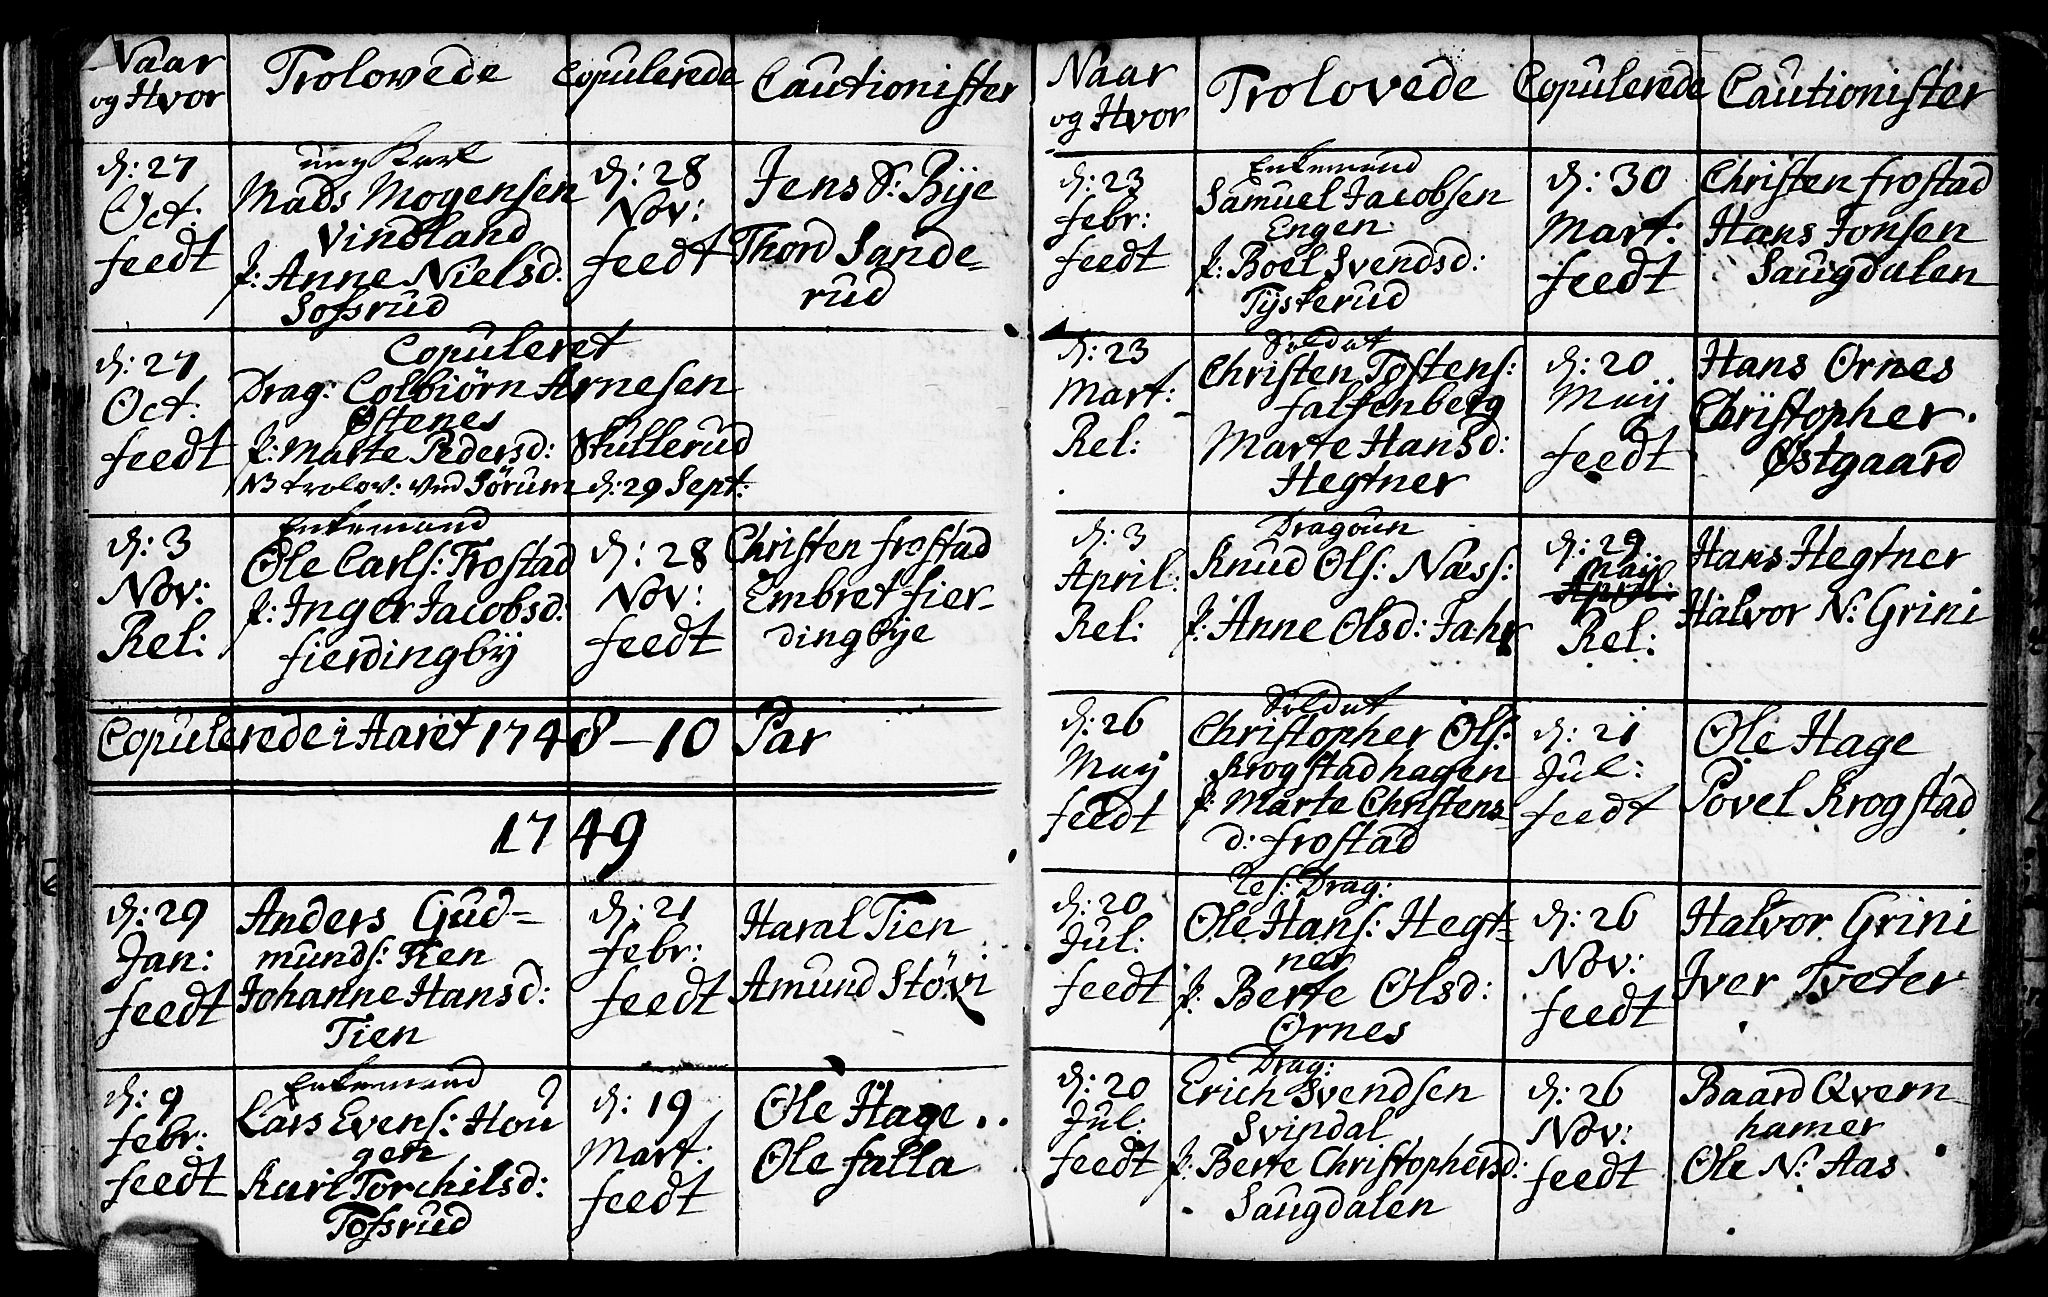 Naar
og Hvor
Trolovede
Copulerede
Cautionister
d: 27
Oct:
feedt
ung Karl
Mads Mogensen
Vindland
P: Anne Nielsd:
Sofsrud
d: 28
Nov:
feedt
Jens S: Bije
Thord Sande=
rud
d: 27
Oct:
feedt
Copuleret
Drag: Colbiörn Arnesen
Østenes
P: Marte Pedersd: Skullerud
NB trolov: ved Sörum d: 29 Sept:
d: 3
Nov:
Rel:
Enkemand
Ole Carls: Frostad
P: Inger Jacobsd:
fierdingbÿ
d: 28
Nov:
feedt
Christen frostad
Embret fier-
dingbÿe
Copulerede i Aaret 1748 - 10 Par
1749
d: 29
Jan:
feedt
Anders Gud=
munds: Tien
Johanne Hansd:
Tien
d: 21
febr:
feedt
Haral Tien
Amund Stövi
d: 9
febr:
feedt
Enkemand
Lars Evens: Hou
gen
Kari Torchilsd:
Tofsrud
d: 19
Mart:
feedt
Ole Hage
Ole falla
Naar
og Hvor
Trolovede
Copulerede
Cautionister
d: 23
febr:
feedt
Enkemand
Samuel Jacobsen
Engen
P: Boel Svendsd:
Tÿskerud
d: 30
Mart:
feedt
Christen frostad
Hans Jonsen
Saugdalen
d: 23
Mart:
Rel:
Soldat
Christen Tostens:
falkenberg
Marte Hansd:
Hegtner
d: 20
Maÿ
feedt
Hans Ornes
Christopher
Østgaard
d: 3
April:
Rel:
Dragoun
Knud Ols: Næss:
P: Anne Olsd: Jahr
d: 29
Maÿ
April:
Rel:
Hans Hegtner
Halvor N: Grini
d: 26
Maÿ
feedt
Soldat
Christopher Ols:
Krogstadhagen
P: Marte Christens=
d: frostad
d: 21
Jul:
feedt
Ole Hage
Povel Krogstad
d: 20
Jul:
feedt
Res: Drag:
Ole Hans: Hegt=
ner
P: Berte Olsd:
Ornes
d: 26
Nov:
feedt
Halvor Grini
Iver Tveter
d: 20
Jul:
feedt
Drag:
Erich Svendsen
Svindal
P: Berte Christophersd:
Saugdalen
d: 26
Nov:
feedt
Baard Qvern
hamer
Ole N: Aas